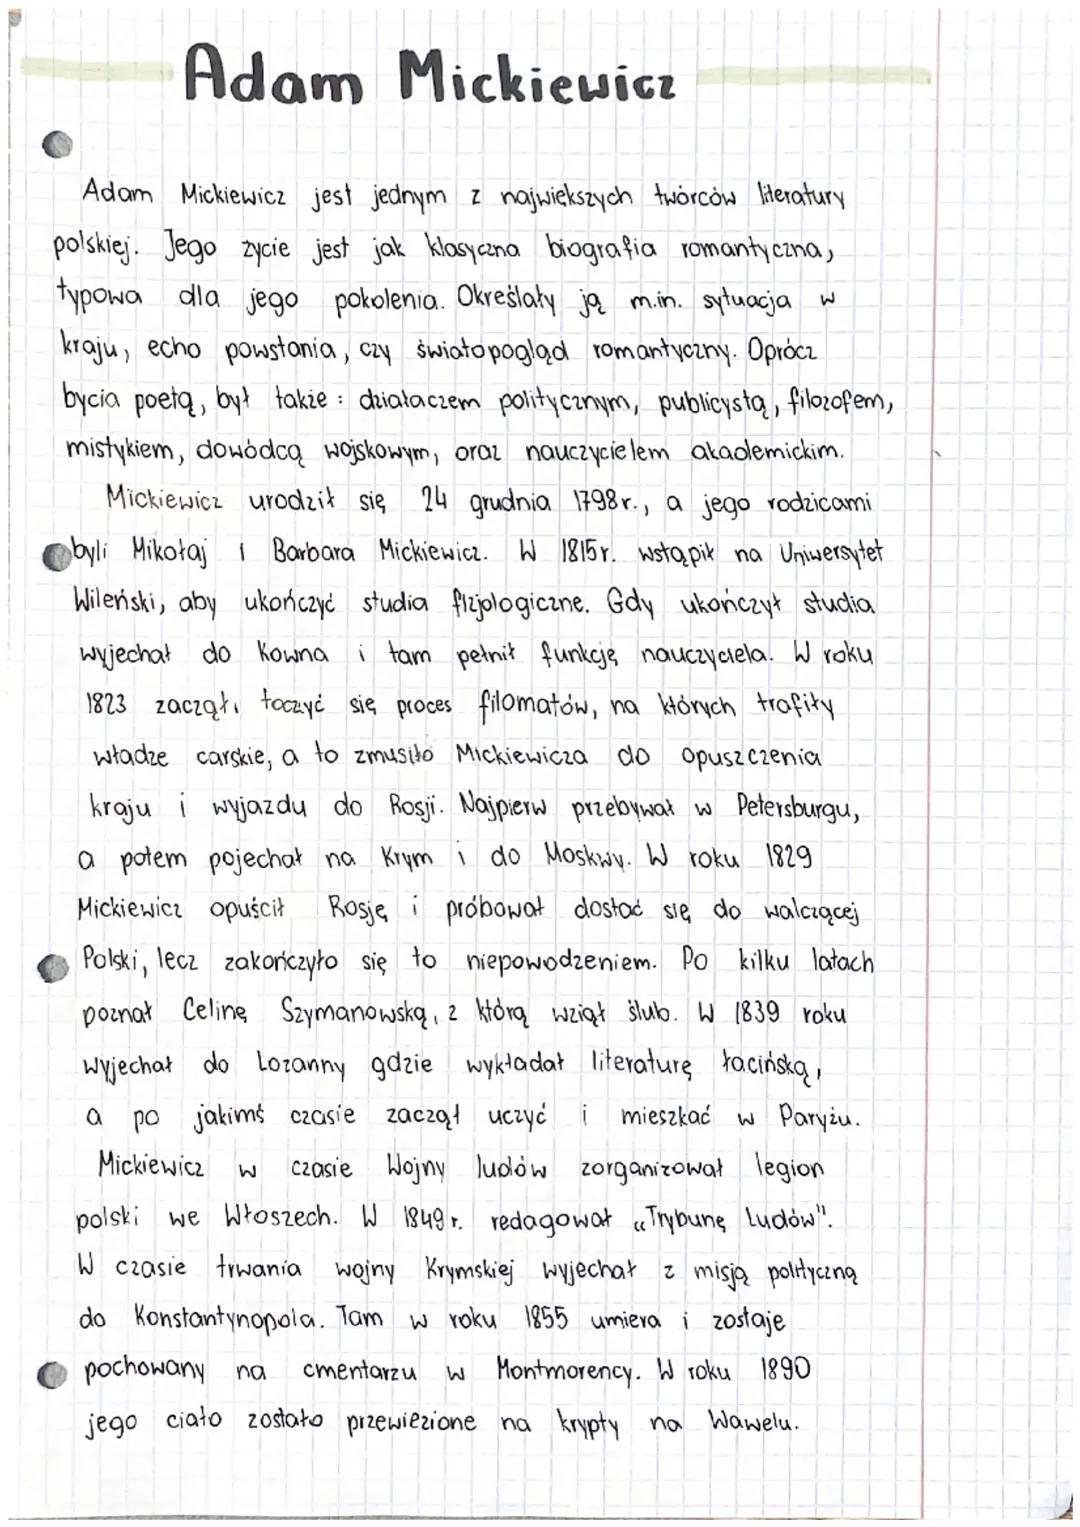 Adam Mickiewicz
Adam Mickiewicz jest jednym z największych twórców literatury
polskiej. Jego życie jest jak klasyczna biografia romantyczna,
typowa dla jego pokolenia. Określały ją m.in. sytuacja w
kraju, echo powstania, czy światopogląd romantyczny. Oprócz
bycia poetą, był także: działaczem politycznym, publicystą, filozofem,
mistykiem, dowódcą wojskowym, oraz nauczycielem akademickim.
Mickiewicz urodził się 24 grudnia 1798r., a jego rodzicami
byli Mikołaj i Barbara Mickiewicz. W 1815r. wstąpił na Uniwersytet
Wileński, aby ukończyć studia fizjologiczne. Gdy ukończył studia
wyjechał do Kowna i tam pełnił funkcję nauczyciela. W roku
1823 zaczął toczyć się proces filomatów, na których trafiły
władze carskie, a to zmusiło Mickiewicza do opuszczenia
kraju i wyjazdu do Rosji. Najpierw przebywał w Petersburgu,
a potem pojechał na Krym i do Moskwy. W roku 1829
Mickiewicz opuścił Rosję i próbował dostać się do walczącej
Polski, lecz zakończyło się to niepowodzeniem. Po kilku latach
poznał Celinę Szymanowską, z którą wziął ślub. W 1839 roku
wyjechał do Lozanny gdzie wykładał literaturę łacińską,
a po jakimś czasie zaczął uczyć i mieszkać w Paryżu.
Mickiewicz w czasie Wojny ludów zorganizował legion
polski we Włoszech. W 1849r. redagował „Trybunę Ludów".
W czasie trwania wojny Krymskiej wyjechał z misją polityczną
do Konstantynopola. Tam w roku 1855 umiera i zostaje
pochowany na cmentarzu w Montmorency. W roku 1890
jego ciało zostało przewiezione na krypty na Wawelu.